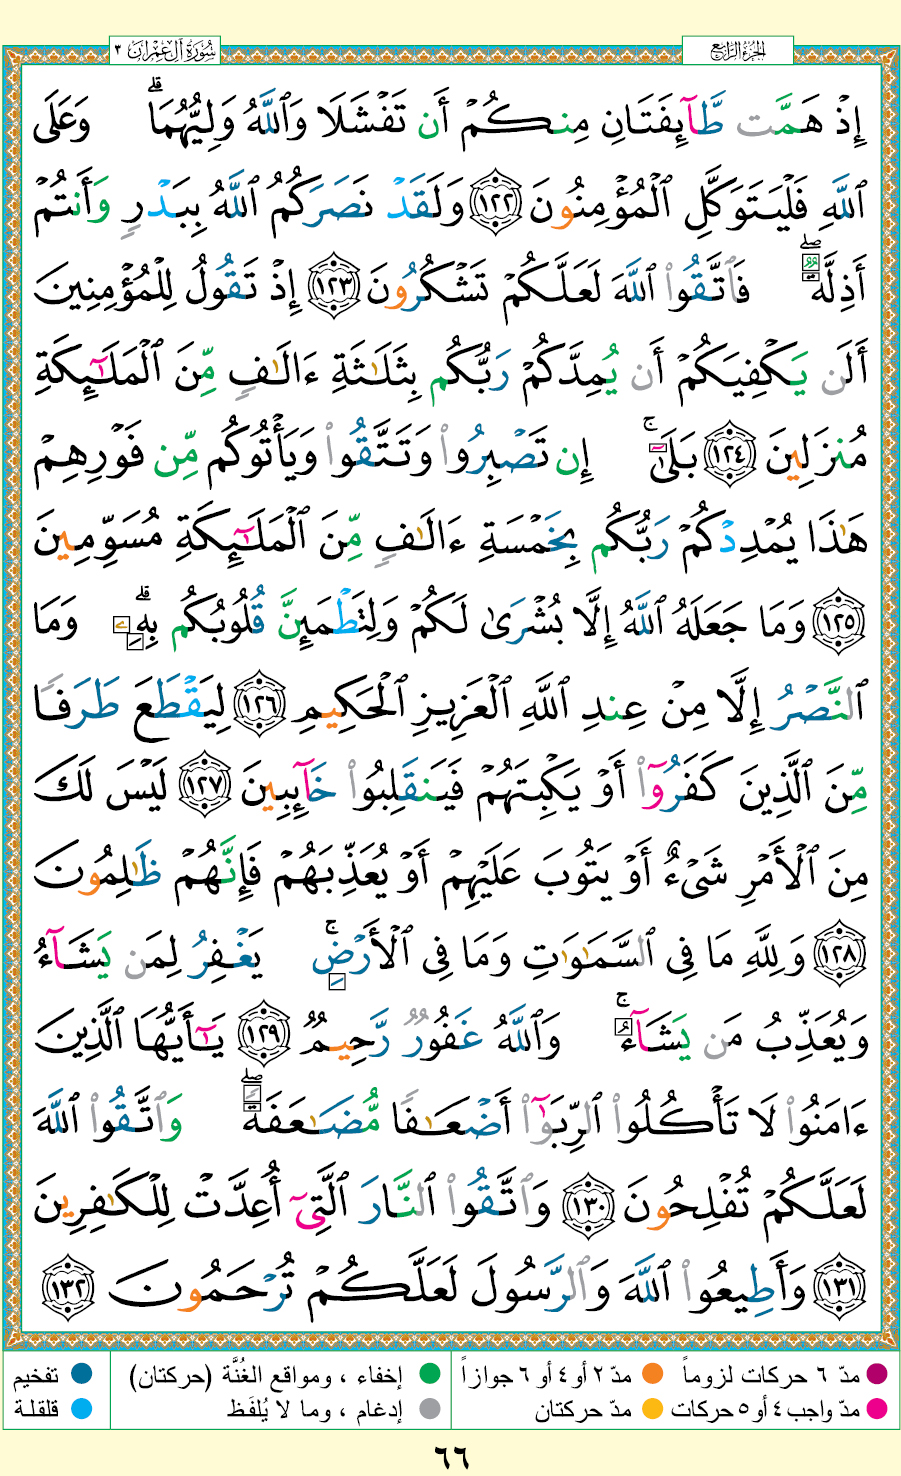 سُورَةُ آلِ عِمْرَان ٣
الجُزءُ الرَّابِع
إِذْ هَمَّت طَّآئِفَتَانِ مِنكُمْ أَن تَفْشَلَا وَٱللَّهُ وَلِيُّهُمَاۗ وَعَلَى
ٱللَّهِ فَلْيَتَوَكَّلِ ٱلْمُؤْمِنُونَ ١٢٢ وَلَقَدْ نَصَرَكُمُ ٱللَّهُ بِبَدْرٍ وَأَنتُمْ
أَذِلَّةٌۖ فَٱتَّقُوا۟ ٱللَّهَ لَعَلَّكُمْ تَشْكُرُونَ ١٢٣ إِذْ تَقُولُ لِلْمُؤْمِنِينَ
أَلَن يَكْفِيَكُمْ أَن يُمِدَّكُمْ رَبُّكُم بِثَلَٰثَةِ ءَالَٰفٍ مِّنَ ٱلْمَلَٰٓئِكَةِ
مُنزَلِينَ ١٢٤ بَلَىٰٓۚ إِن تَصْبِرُوا۟ وَتَتَّقُوا۟ وَيَأْتُوكُم مِّن فَوْرِهِمْ
هَٰذَا يُمْدِدْكُمْ رَبُّكُم بِخَمْسَةِ ءَالَٰفٍ مِّنَ ٱلْمَلَٰٓئِكَةِ مُسَوِّمِينَ
١٢٥ وَمَا جَعَلَهُ ٱللَّهُ إِلَّا بُشْرَىٰ لَكُمْ وَلِتَطْمَئِنَّ قُلُوبُكُم بِهِۦۗ وَمَا
ٱلنَّصْرُ إِلَّا مِنْ عِندِ ٱللَّهِ ٱلْعَزِيزِ ٱلْحَكِيمِ ١٢٦ لِيَقْطَعَ طَرَفًا
مِّنَ ٱلَّذِينَ كَفَرُوٓا۟ أَوْ يَكْبِتَهُمْ فَيَنقَلِبُوا۟ خَآئِبِينَ ١٢٧ لَيْسَ لَكَ
مِنَ ٱلْأَمْرِ شَىْءٌ أَوْ يَتُوبَ عَلَيْهِمْ أَوْ يُعَذِّبَهُمْ فَإِنَّهُمْ ظَٰلِمُونَ
١٢٨ وَلِلَّهِ مَا فِى ٱلسَّمَٰوَٰتِ وَمَا فِى ٱلْأَرْضِۚ يَغْفِرُ لِمَن يَشَآءُ
وَيُعَذِّبُ مَن يَشَآءُۚ وَٱللَّهُ غَفُورٌ رَّحِيمٌ ١٢٩ يَٰٓأَيُّهَا ٱلَّذِينَ
ءَامَنُوا۟ لَا تَأْكُلُوا۟ ٱلرِّبَوٰٓا۟ أَضْعَٰفًا مُّضَٰعَفَةًۖ وَٱتَّقُوا۟ ٱللَّهَ
لَعَلَّكُمْ تُفْلِحُونَ ١٣٠ وَٱتَّقُوا۟ ٱلنَّارَ ٱلَّتِىٓ أُعِدَّتْ لِلْكَٰفِرِينَ
١٣١ وَأَطِيعُوا۟ ٱللَّهَ وَٱلرَّسُولَ لَعَلَّكُمْ تُرْحَمُونَ ١٣٢
مدّ ٦ حركات لزوماً مدّ ٢ أو ٤ أو ٦ جوازاً إخفاء ، ومواقع الغُنَّة (حركتان) تفخيم
مدّ واجب ٤ أو ٥ حركات مدّ حركتان إدغام ، وما لا يُلفَظ قلقلة
٦٦